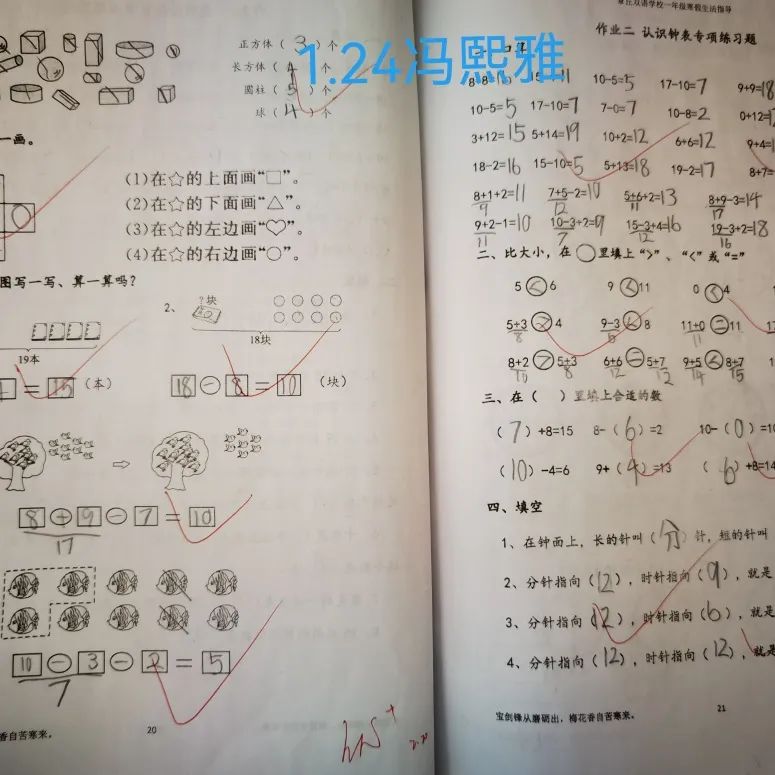 正方体（3）个
长方体（4）个
圆柱（5）个
球（4）个
一画。
(1)在☆的上面画“□”。
(2)在☆的下面画“△”。
(3)在☆的左边画“♡”。
(4)在☆的右边画“○”。
图写一写、算一算吗？
2、 ?块
18块
19本
= 15 （本）
18 - 8 = 10 （块）
8 + 9 - 7 = 10
17
10 - 3 - 2 = 5
7
香自苦寒来。
20
章丘双语学校一年级寒假生活指导
作业二 认识钟表专项练习题
1.24冯熙雅
10-5=5 17-10=7 9+9=18
10-5=5 17-10=7 7-0=7 10-8=2 0+12=
3+12=15 5+14=19 10+2=12 6+6=12 9+4=
18-2=16 15-10=5 5+13=18 19-2=17 8+7=
8+1+2=11 7+5-2=10 5+6+2=13 8+9-3=14
9 12 11 17
9+2-1=10 10-3+2=9 15-3+4=16 19-3+2=18
11 7 12 16
二、比大小，在○里填上“>”、“<”或“=”
5<6 9<11 0<4
5+3>4 9-3<8 11+0=11
8 11
8+2>5+3 6+6=5+7 9+5<8+7
10 8 12 12 14 15
三、在（ ）里填上合适的数
（7）+8=15 8-（6）=2 10-（0）=10
（10）-4=6 9+（4）=13 （6）+8=14
四、填空
1、在钟面上，长的针叫（分）针，短的针叫
2、分针指向（12），时针指向（9），就是
3、分针指向（12），时针指向（6），就是
4、分针指向（12），时针指向（12），就是
宝剑锋从磨砺出，梅花香自苦寒来。
21